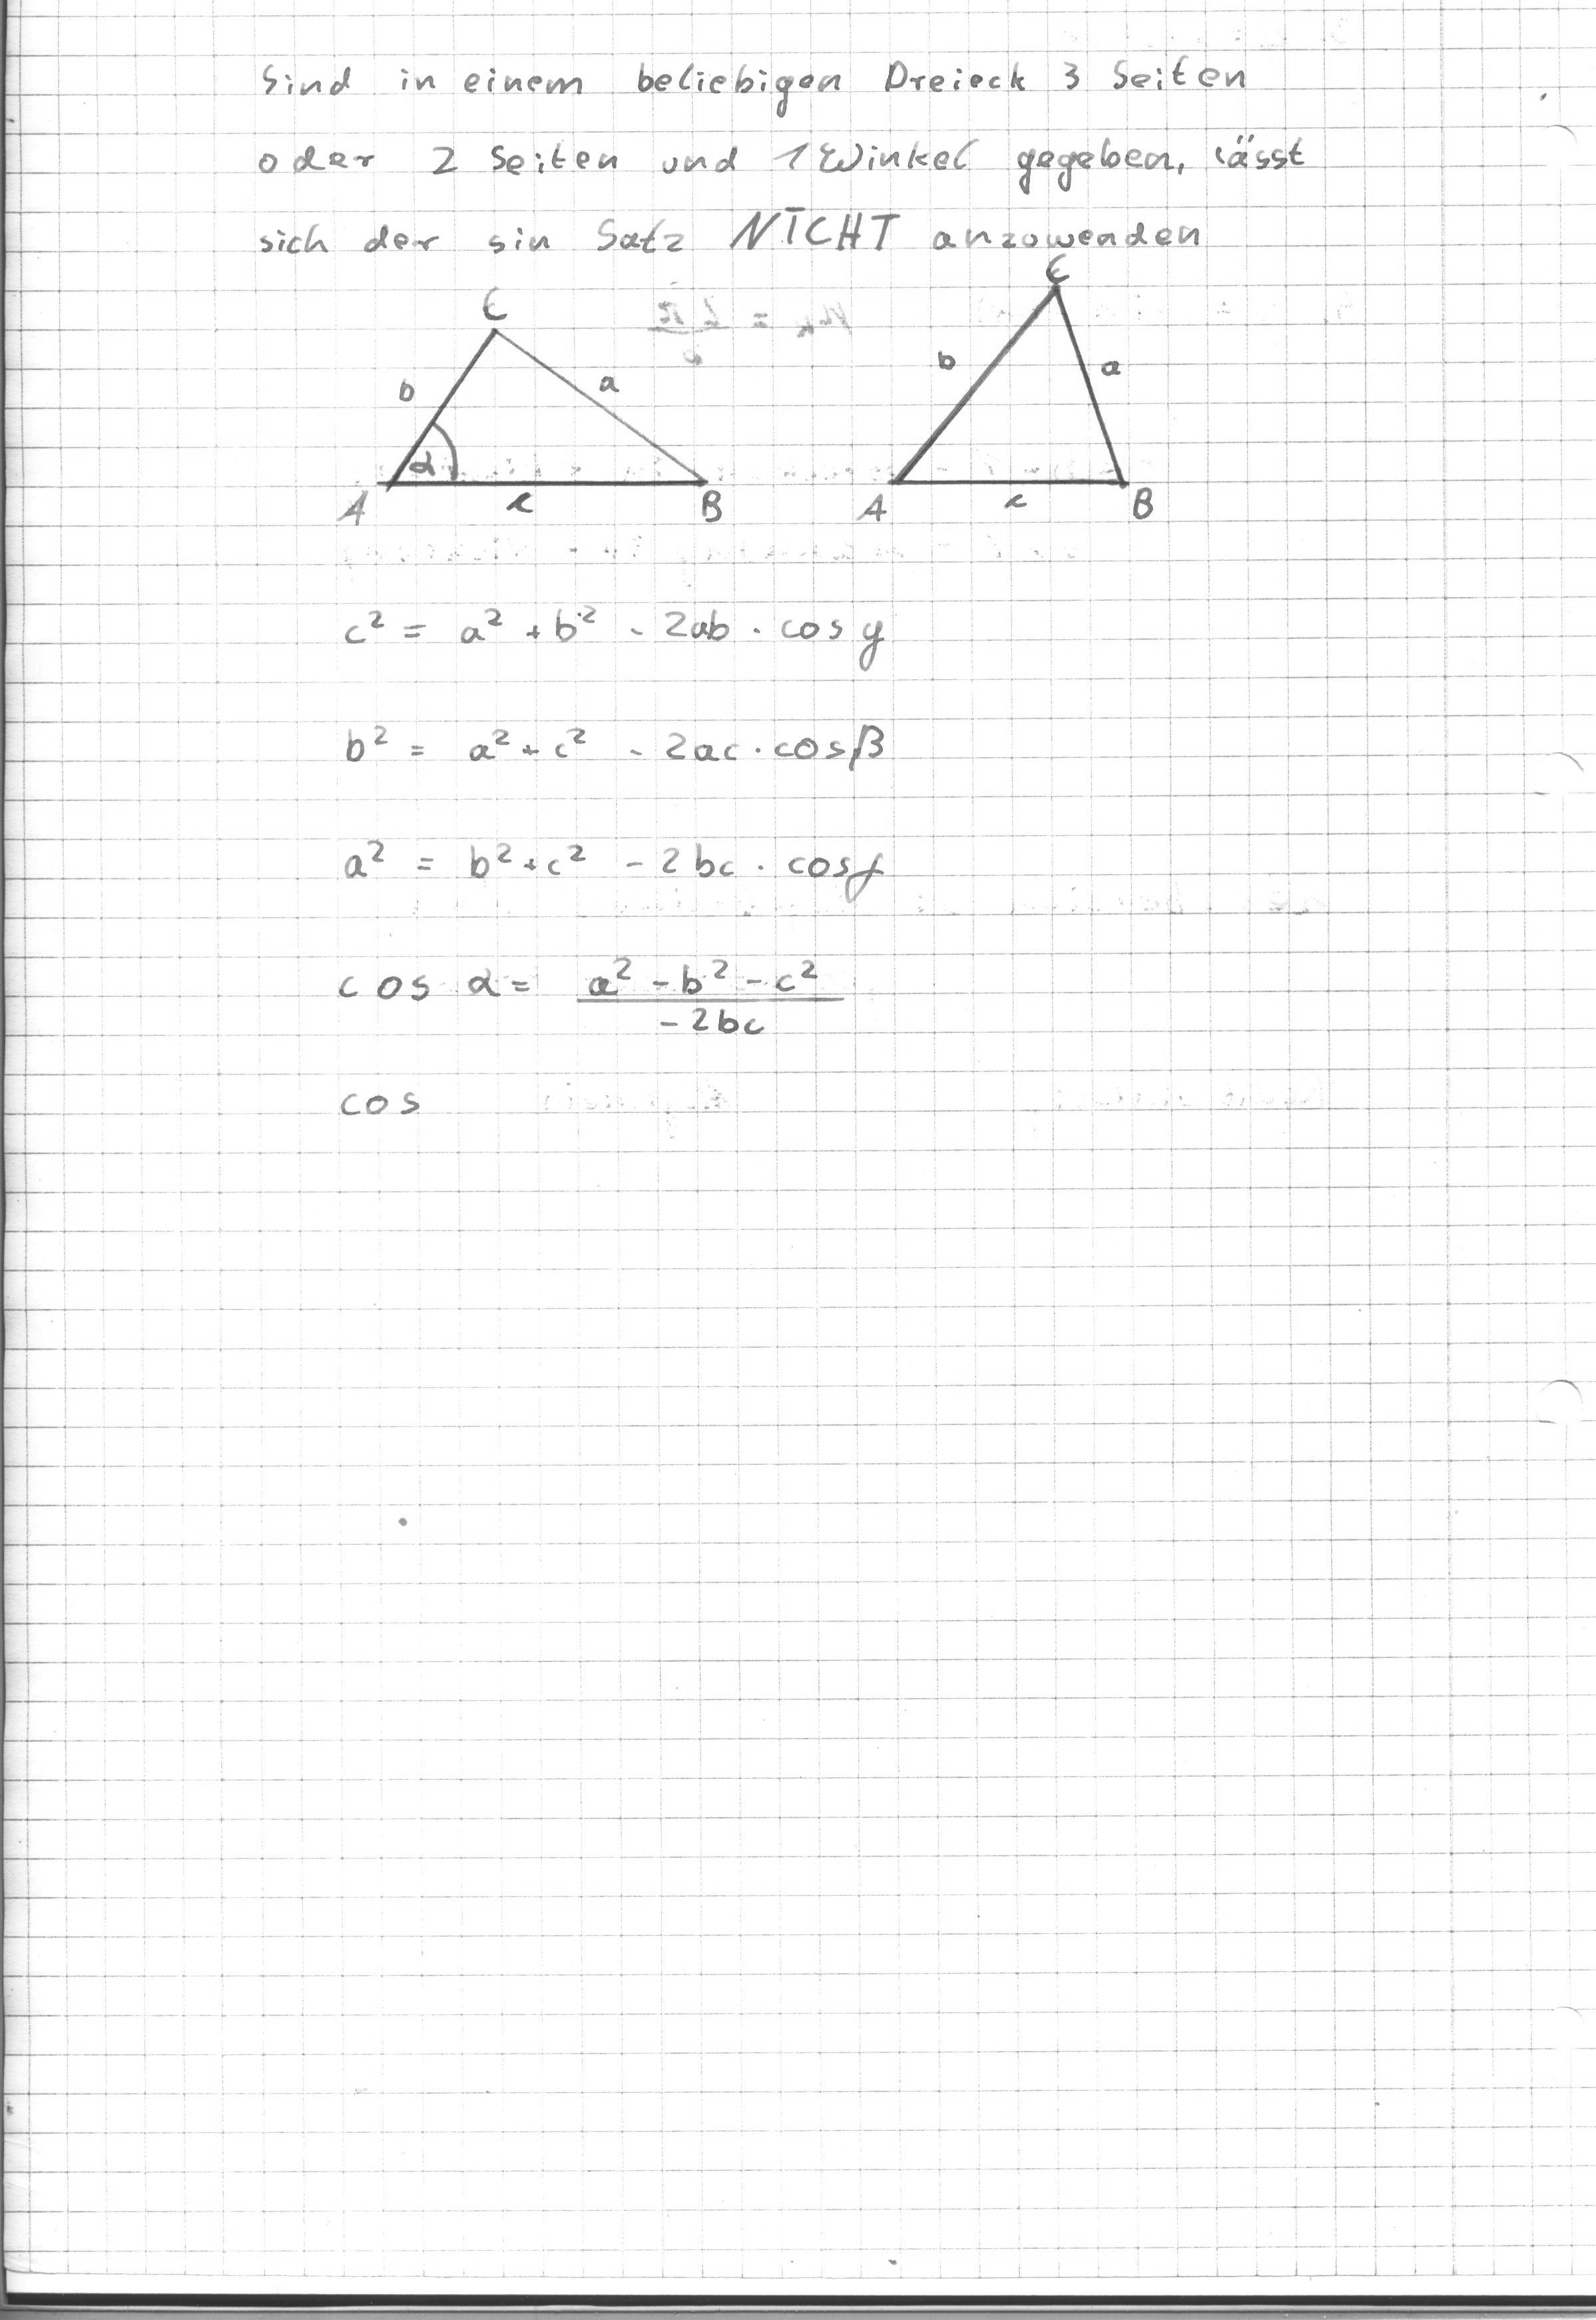 Sind in einem beliebigen Dreieck 3 Seiten
oder 2 Seiten und 1 Winkel gegeben, lässt
sich der sin Satz NICHT anzuwenden
C
b a
α
A c B
C
b a
A c B
c² = a² + b² - 2ab · cos γ
b² = a² + c² - 2ac · cos β
a² = b² + c² - 2bc · cos
cos α = a² - b² - c²
- 2bc
cos